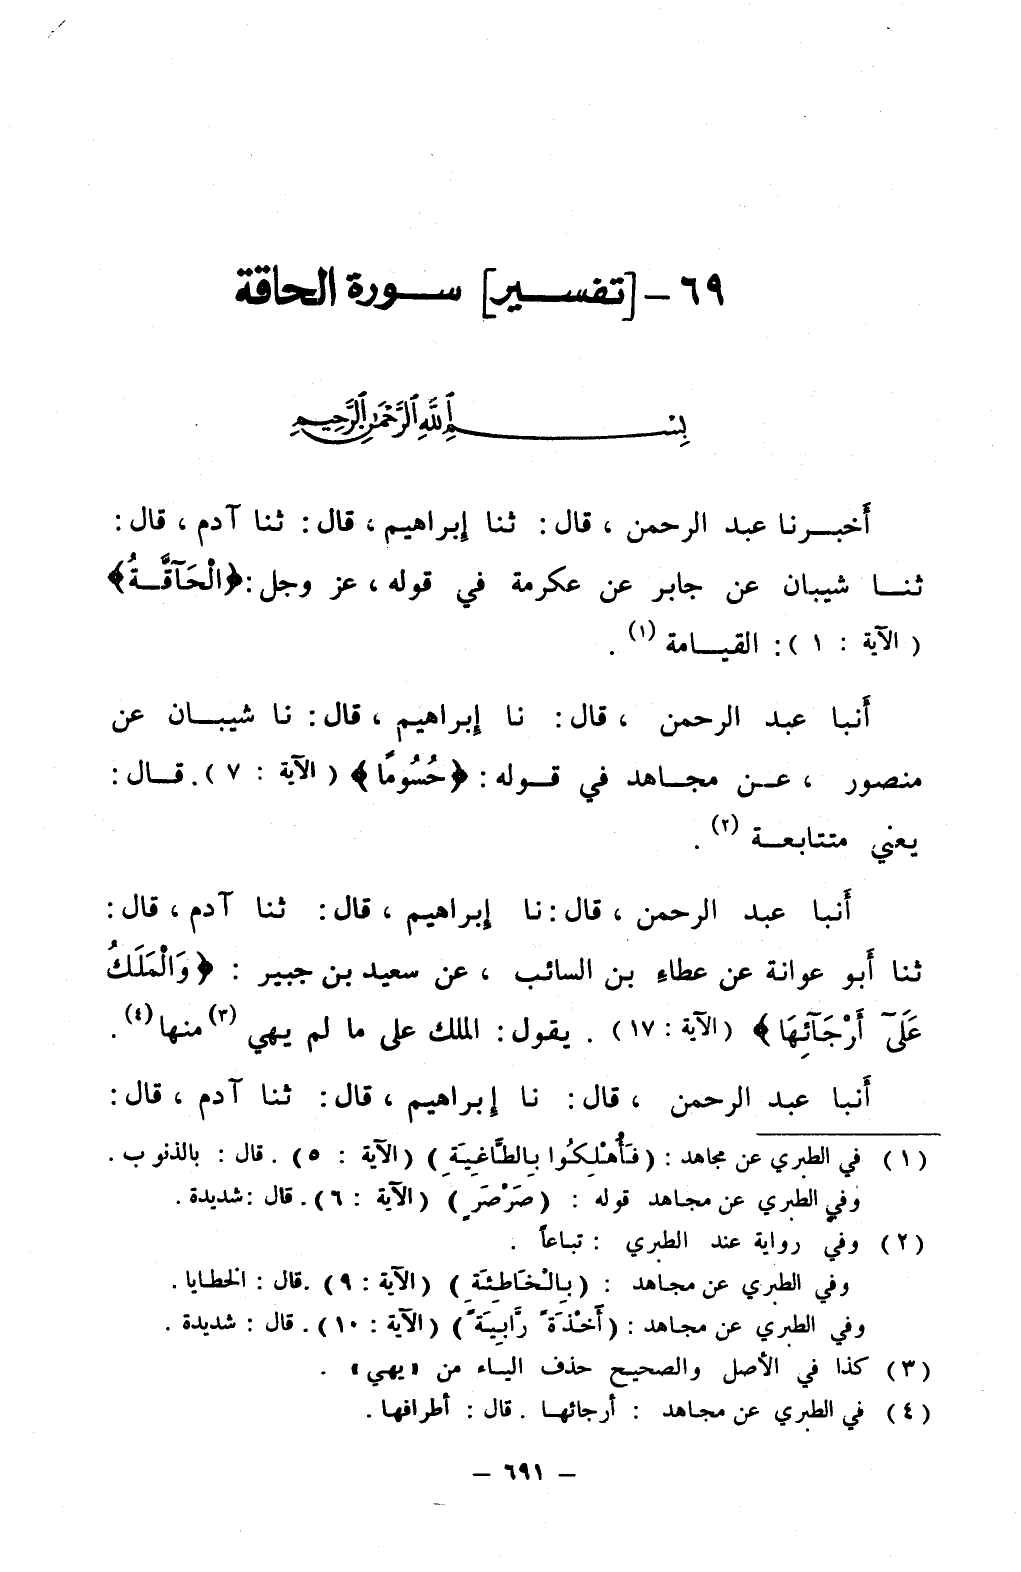 ٦٩ - [تفسير] سورة الحاقة
بسم الله الرحمن الرحيم
أَخبرنا عبد الرحمن ، قال : ثنا إبراهيم ، قال : ثنا آدم ، قال :
ثنا شيبان عن جابر عن عكرمة في قوله ، عز وجل : ﴿الْحَآقَّةُ﴾
( الآية : ١ ) : القيامة (١) .
أَنبا عبد الرحمن ، قال : نا إبراهيم ، قال : نا شيبان عن
منصور ، عن مجاهد في قوله : ﴿حُسُومًا﴾ ( الآية : ٧ ) . قال :
يعني متتابعة (٢) .
أَنبا عبد الرحمن ، قال : نا إبراهيم ، قال : ثنا آدم ، قال :
ثنا أَبو عوانة عن عطاءِ بن السائب ، عن سعيد بن جبير : ﴿وَالْمَلَكُ
عَلَىٰٓ أَرْجَآئِهَا﴾ ( الآية : ١٧ ) . يقول : الملك على ما لم يهي (٣) منها (٤) .
أَنبا عبد الرحمن ، قال : نا إبراهيم ، قال : ثنا آدم ، قال :
( ١ ) في الطبري عن مجاهد : ( فَأُهْلِكُوا بِالطَّاغِيَةِ ) ( الآية : ٥ ) . قال : بالذنوب .
وفي الطبري عن مجاهد قوله : ( صَرْصَرٍ ) ( الآية : ٦ ) . قال : شديدة .
( ٢ ) وفي رواية عند الطبري : تباعاً .
وفي الطبري عن مجاهد : ( بِالْخَاطِئَةِ ) ( الآية : ٩ ) . قال : الخطايا .
وفي الطبري عن مجاهد : ( أَخْذَةً رَّابِيَةً ) ( الآية : ١٠ ) . قال : شديدة .
( ٣ ) كذا في الأصل والصحيح حذف الياء من «يهي» .
( ٤ ) في الطبري عن مجاهد : أرجائها . قال : أطرافها .
- ٦٩١ -